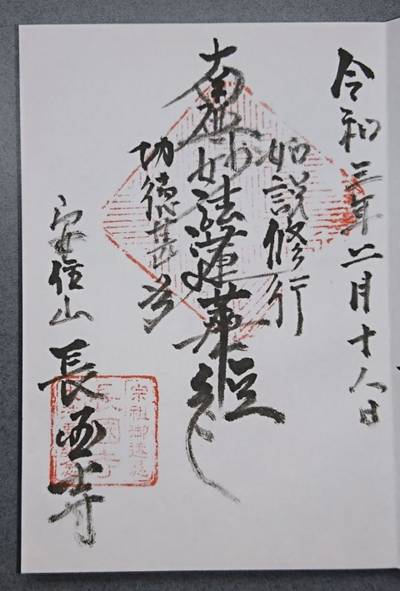 令和三年二月十八日
如説修行
南無妙法蓮華経
功徳甚多
安住山
長国寺
長國寺